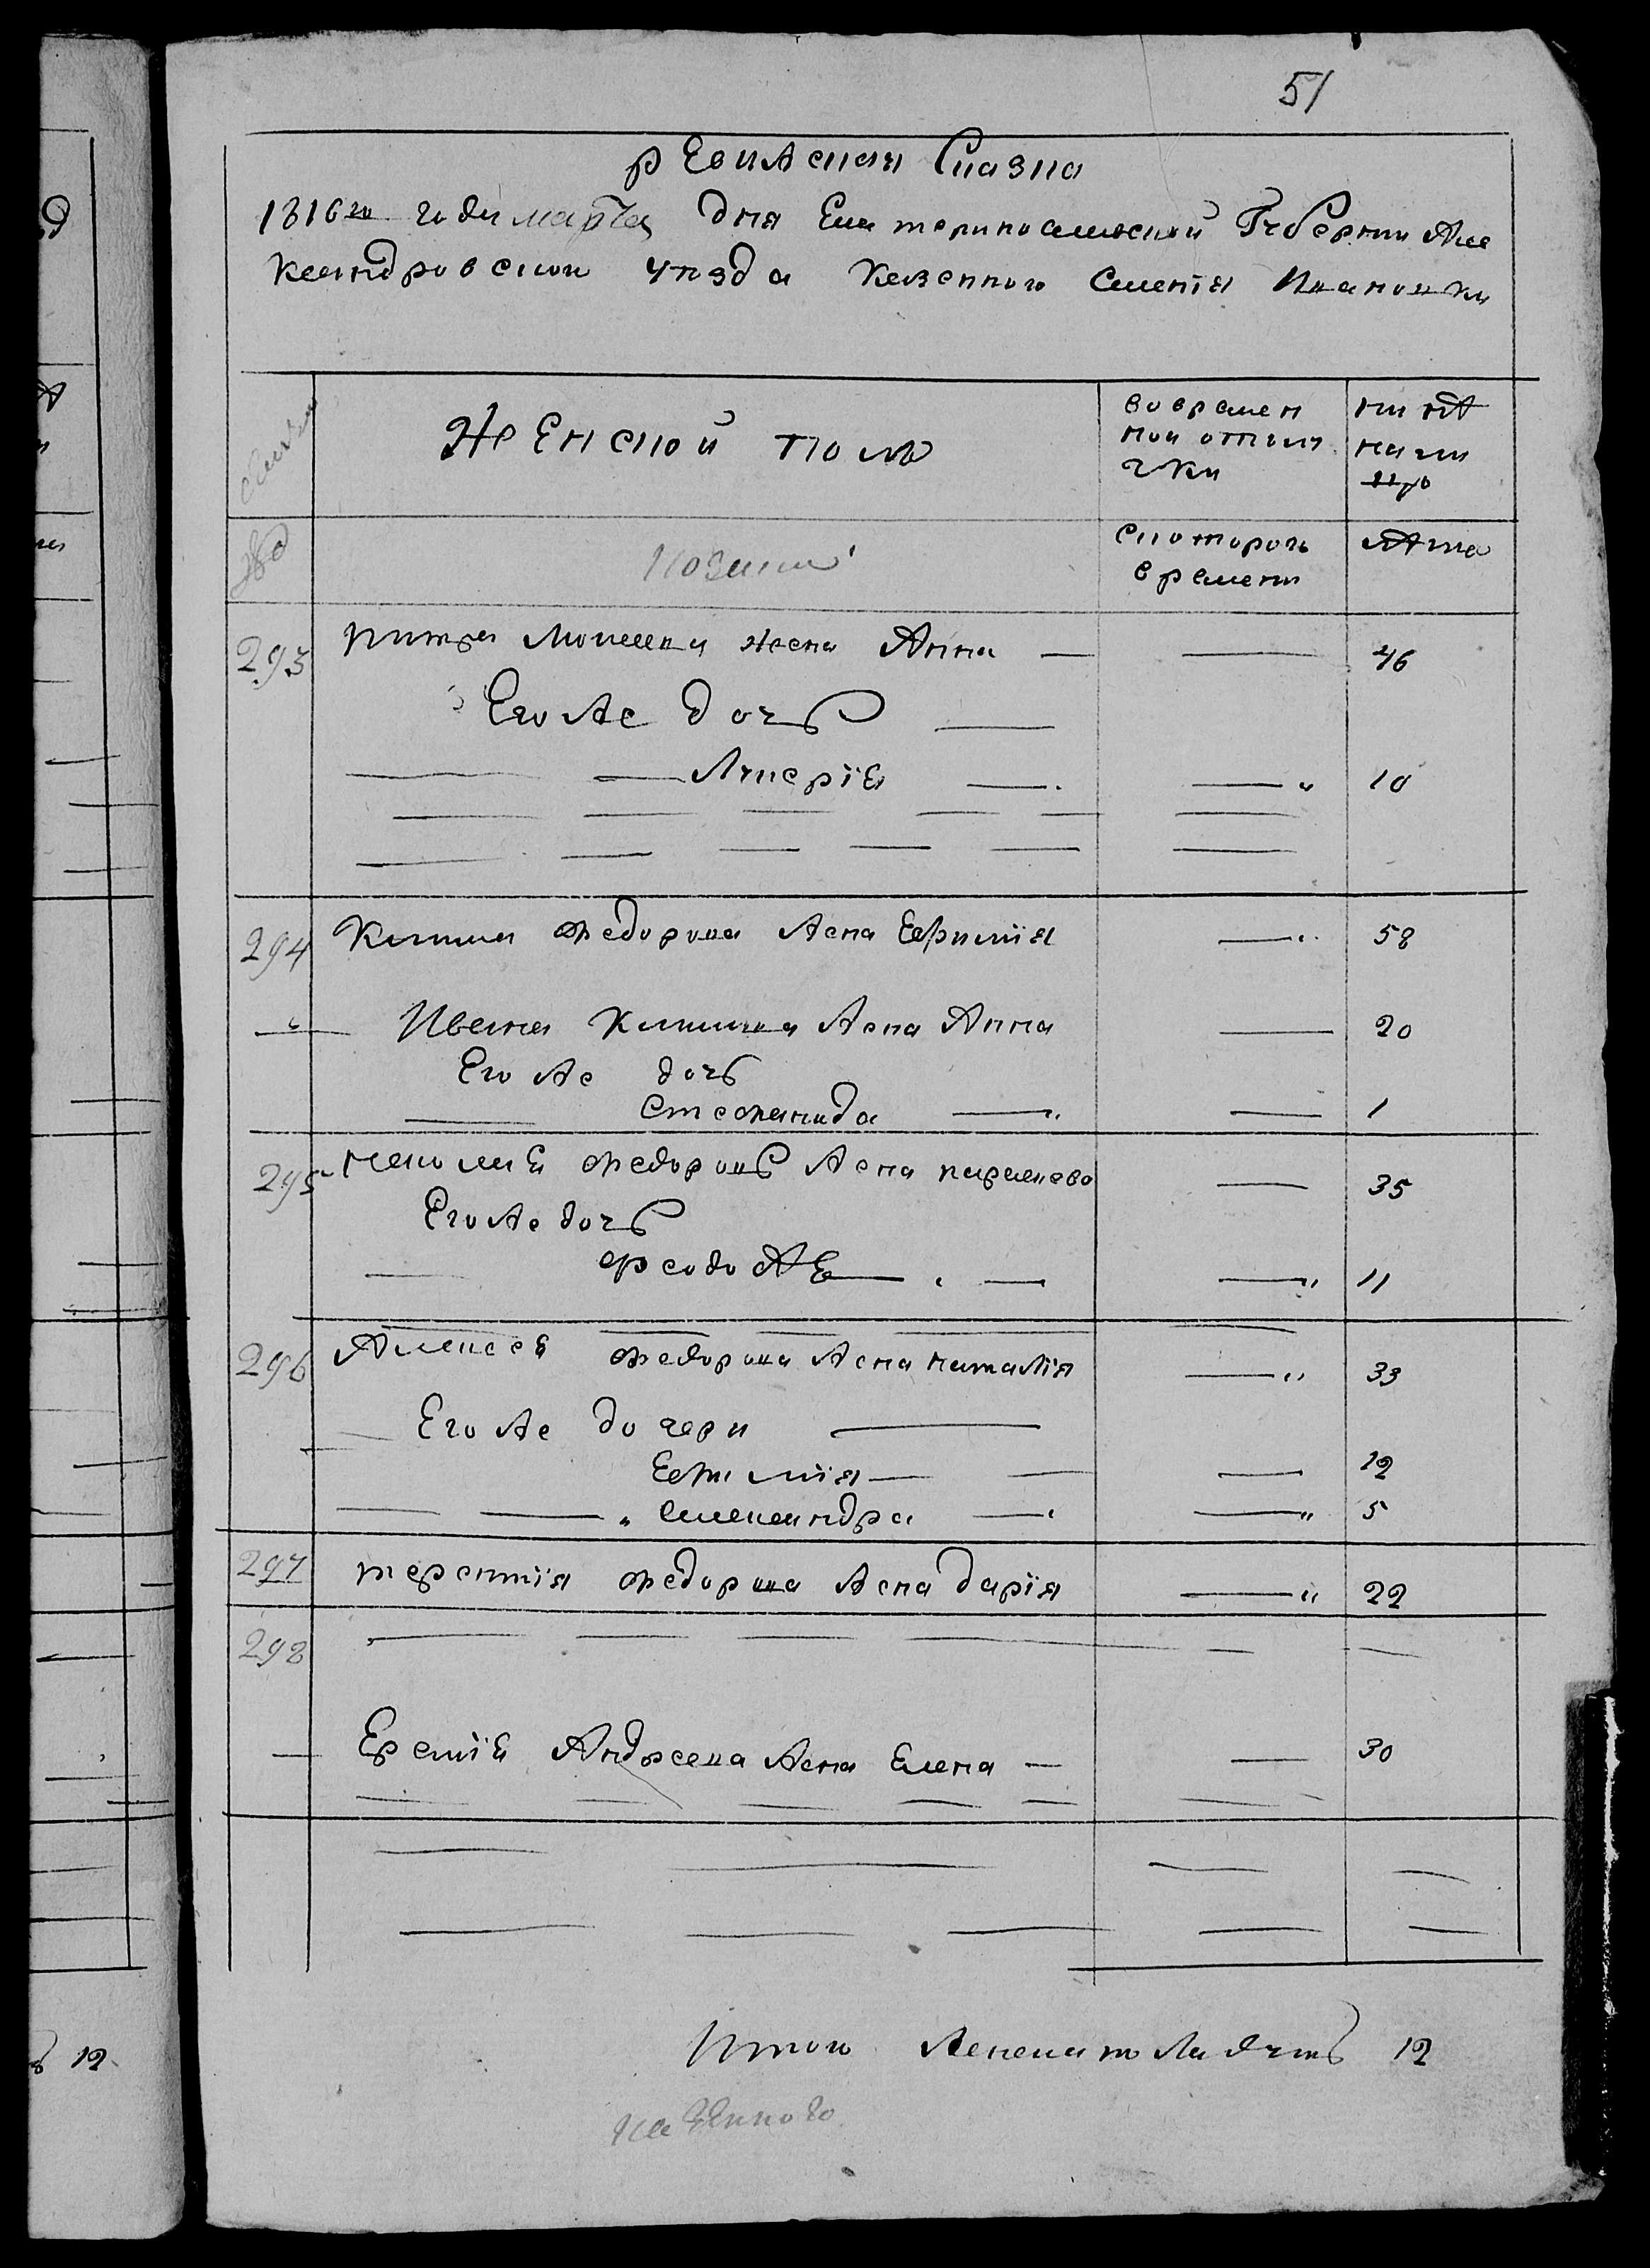 51
ревижская Сказка
1816го года марта дня Екатеринославской Губернии Але
ксандровского уезда казенного селения Ивановки
семьи
Женской полъ
во времен
ной отлу
чки
ны нѣ
на ли
цо
скотораго
времени
лѣта
293 жена Анна — — 46
Его же дочь —
— — Лукерія — — 10
294 Клима Федорова жена Ефимія — 58
Ивана Климова жена Анна — 20
Его же дочь
— Стефанида — — 1
295 Федорова жена — 35
Его же дочь
— — — 11
296 Алексея Федорова жена наталія — 33
— Его же дочери —
Ефимія — — — 12
— — Александра — — 5
297 терентія Федорова жена дарія — 22
298 — — — — — —
— Еремія Андреева жена Елена — — 30
Итого женска полу душъ 12
казенного
12